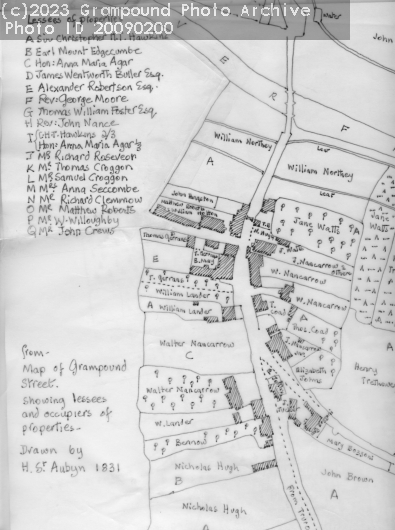 (c)2023 Grampound Photo Archive
Photo ID 20090200
Lessees of properties
A Sir Christopher Hawkins
B Earl Mount Edgecumbe
C Hon: Anna Maria Agar
D James Wentworth Buller Esq.
E Alexander Robertson Esq.
F Rev: George Moore
G Thomas William Foster Esq.
H Rev: John Nance
I C.H.T. Hawkins 2/3
Hon: Anna Maria Agar 1/3
J Mr Richard Rosevear
K Mr Thomas Croggon
L Mr Samuel Croggon
M Mrs Anna Seccombe
N Mr Richard Clemmow
O Mr Matthew Roberts
P Mr W. Willoughby
Q Mr John Crews
from-
Map of Grampound
Street.
showing lessees
and occupiers of
properties-
Drawn by
H. St Aubyn 1831
John
E
R
F
William Northey
A
William Northey
Jane Watts
A
Jane
Watts
E
W. Nancarrow
W. Nancarrow
William Lander
A William Lander
Walter Nancarrow
C
Walter Nancarrow
W. Lander
Bennow
Nicholas Hugh
B
Nicholas Hugh
A
Thos. Coad
Elizabeth
Henry
Mary
John Brown
A
From Truro